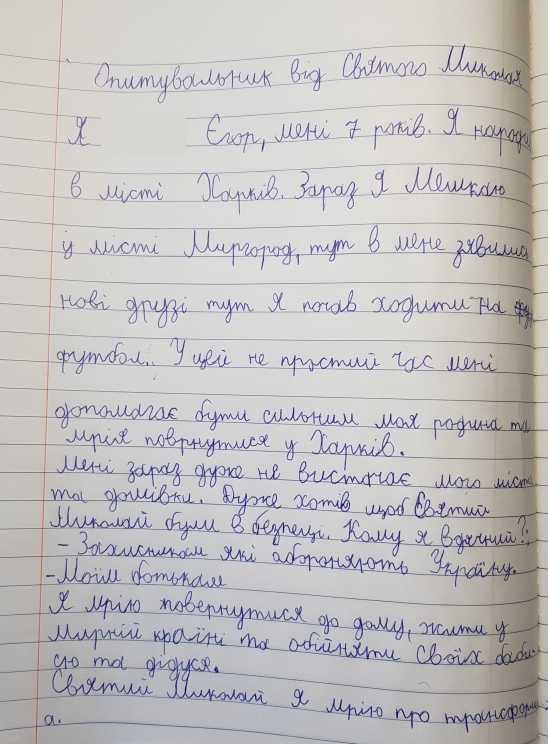 Опитувальник від Святого Миколая
Я Єгор, мені 7 років. Я народи
в місті Харків. Зараз Я Мешкаю
у місті Миргород, тут в мене зявились
нові друзі тут я почав ходити на
футбол. У цей не простий час мені
допомагає бути сильним моя родина та
мрія поврнутися у Харків.
Мені зараз дуже не вистачає мого міста
та домівки. Дуже хотів щоб Святий
Миколай були в безпеці. Кому я вдячний?:
- Захисникам які обороняють Україну.
- Моїм батькам
Я мрію повернутися до дому, жити у
Мирній країні та обійняти Своїх бабу-
сю та дідуся.
Святий Миколай Я мрію про трансформ
а.